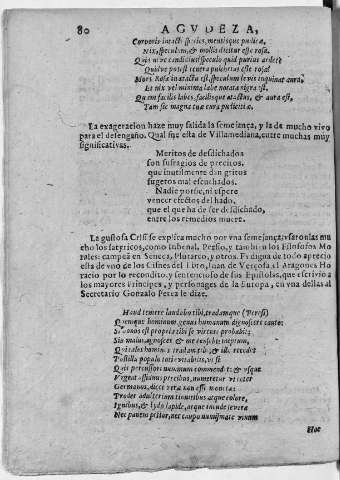 80 AGVDEZA,
Corporis intacti species, mentisque pudicæ,
Nix, speculum, & mollis dicitur esse rosa.
Quid nive candidius? speculo quid purius ardet?
Quidve potest tenera pulchrius esse rosa?
Mors Rosa intacta est, speculum levis inquinat aura,
Et nix vel minima labe notata nigra est.
Quam facilis labes, facilisque atactus, & aura est,
Tam sit magna tuæ cura pudicitiæ.
La exageracion haze muy salida la semejança, y la da mucho vivo
para el desengaño. Qual fue esta de Villamediana, entre muchas muy
significativas.
Meritos de desdichados
son sufragios de precitos,
que inutilmente dan gritos
sugetos mal escuchados.
Nadie porfie, ni espere
vencer efectos del hado,
que el que ha de ser desdichado,
entre los remedios muere.
La gustosa Crisi se explica mucho por vna semejança; vsaronlas mu
cho los satyricos, como Iubenal, Persio, y tambien los Filosofos Mo
rales: campea en Seneca, Plutarco, y otros. Es digna de todo aprecio
esta de vno de los Cisnes del Ebro, Iuan de Vergosa, el Aragones Ho
racio por lo recondito, y sentencioso de sus Epistolas, que escrivió a
los mayores Principes, y personages de la Europa, en vna dellas al
Secretario Gonzalo Perez le dize.
Haud temere laudabo tibi, tradamque (Peresi)
Quemque hominum genus humanum dignoscere
est propria tibi se virtute probabit;
Sin malus, agnoscet &
Quales homines tradam tibi, & ille recedit
Postilla populo toties
Quis percussori nummum commendet & vsque
Vrgeat assiduus precibus, numeretur vt
Germanus, dicet vera non esse monetæ
Prodet adulterium tinnitus atque colore,
Ignibus, & Lydo lapide, atque incude severa
Nec panem pistor, nec caupo nummatc vinum
Hoc